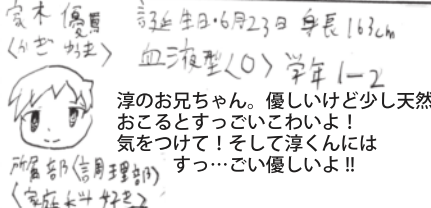 家木 優
誕生日・6月23日 身長 163cm
血液型〈O〉 学年 1-2
淳のお兄ちゃん。優しいけど少し天然
おこるとすっごいこわいよ!
気をつけて!そして淳くんには
すっ…ごい優しいよ!!
所属部〈調理部〉
〈家庭科好き〉